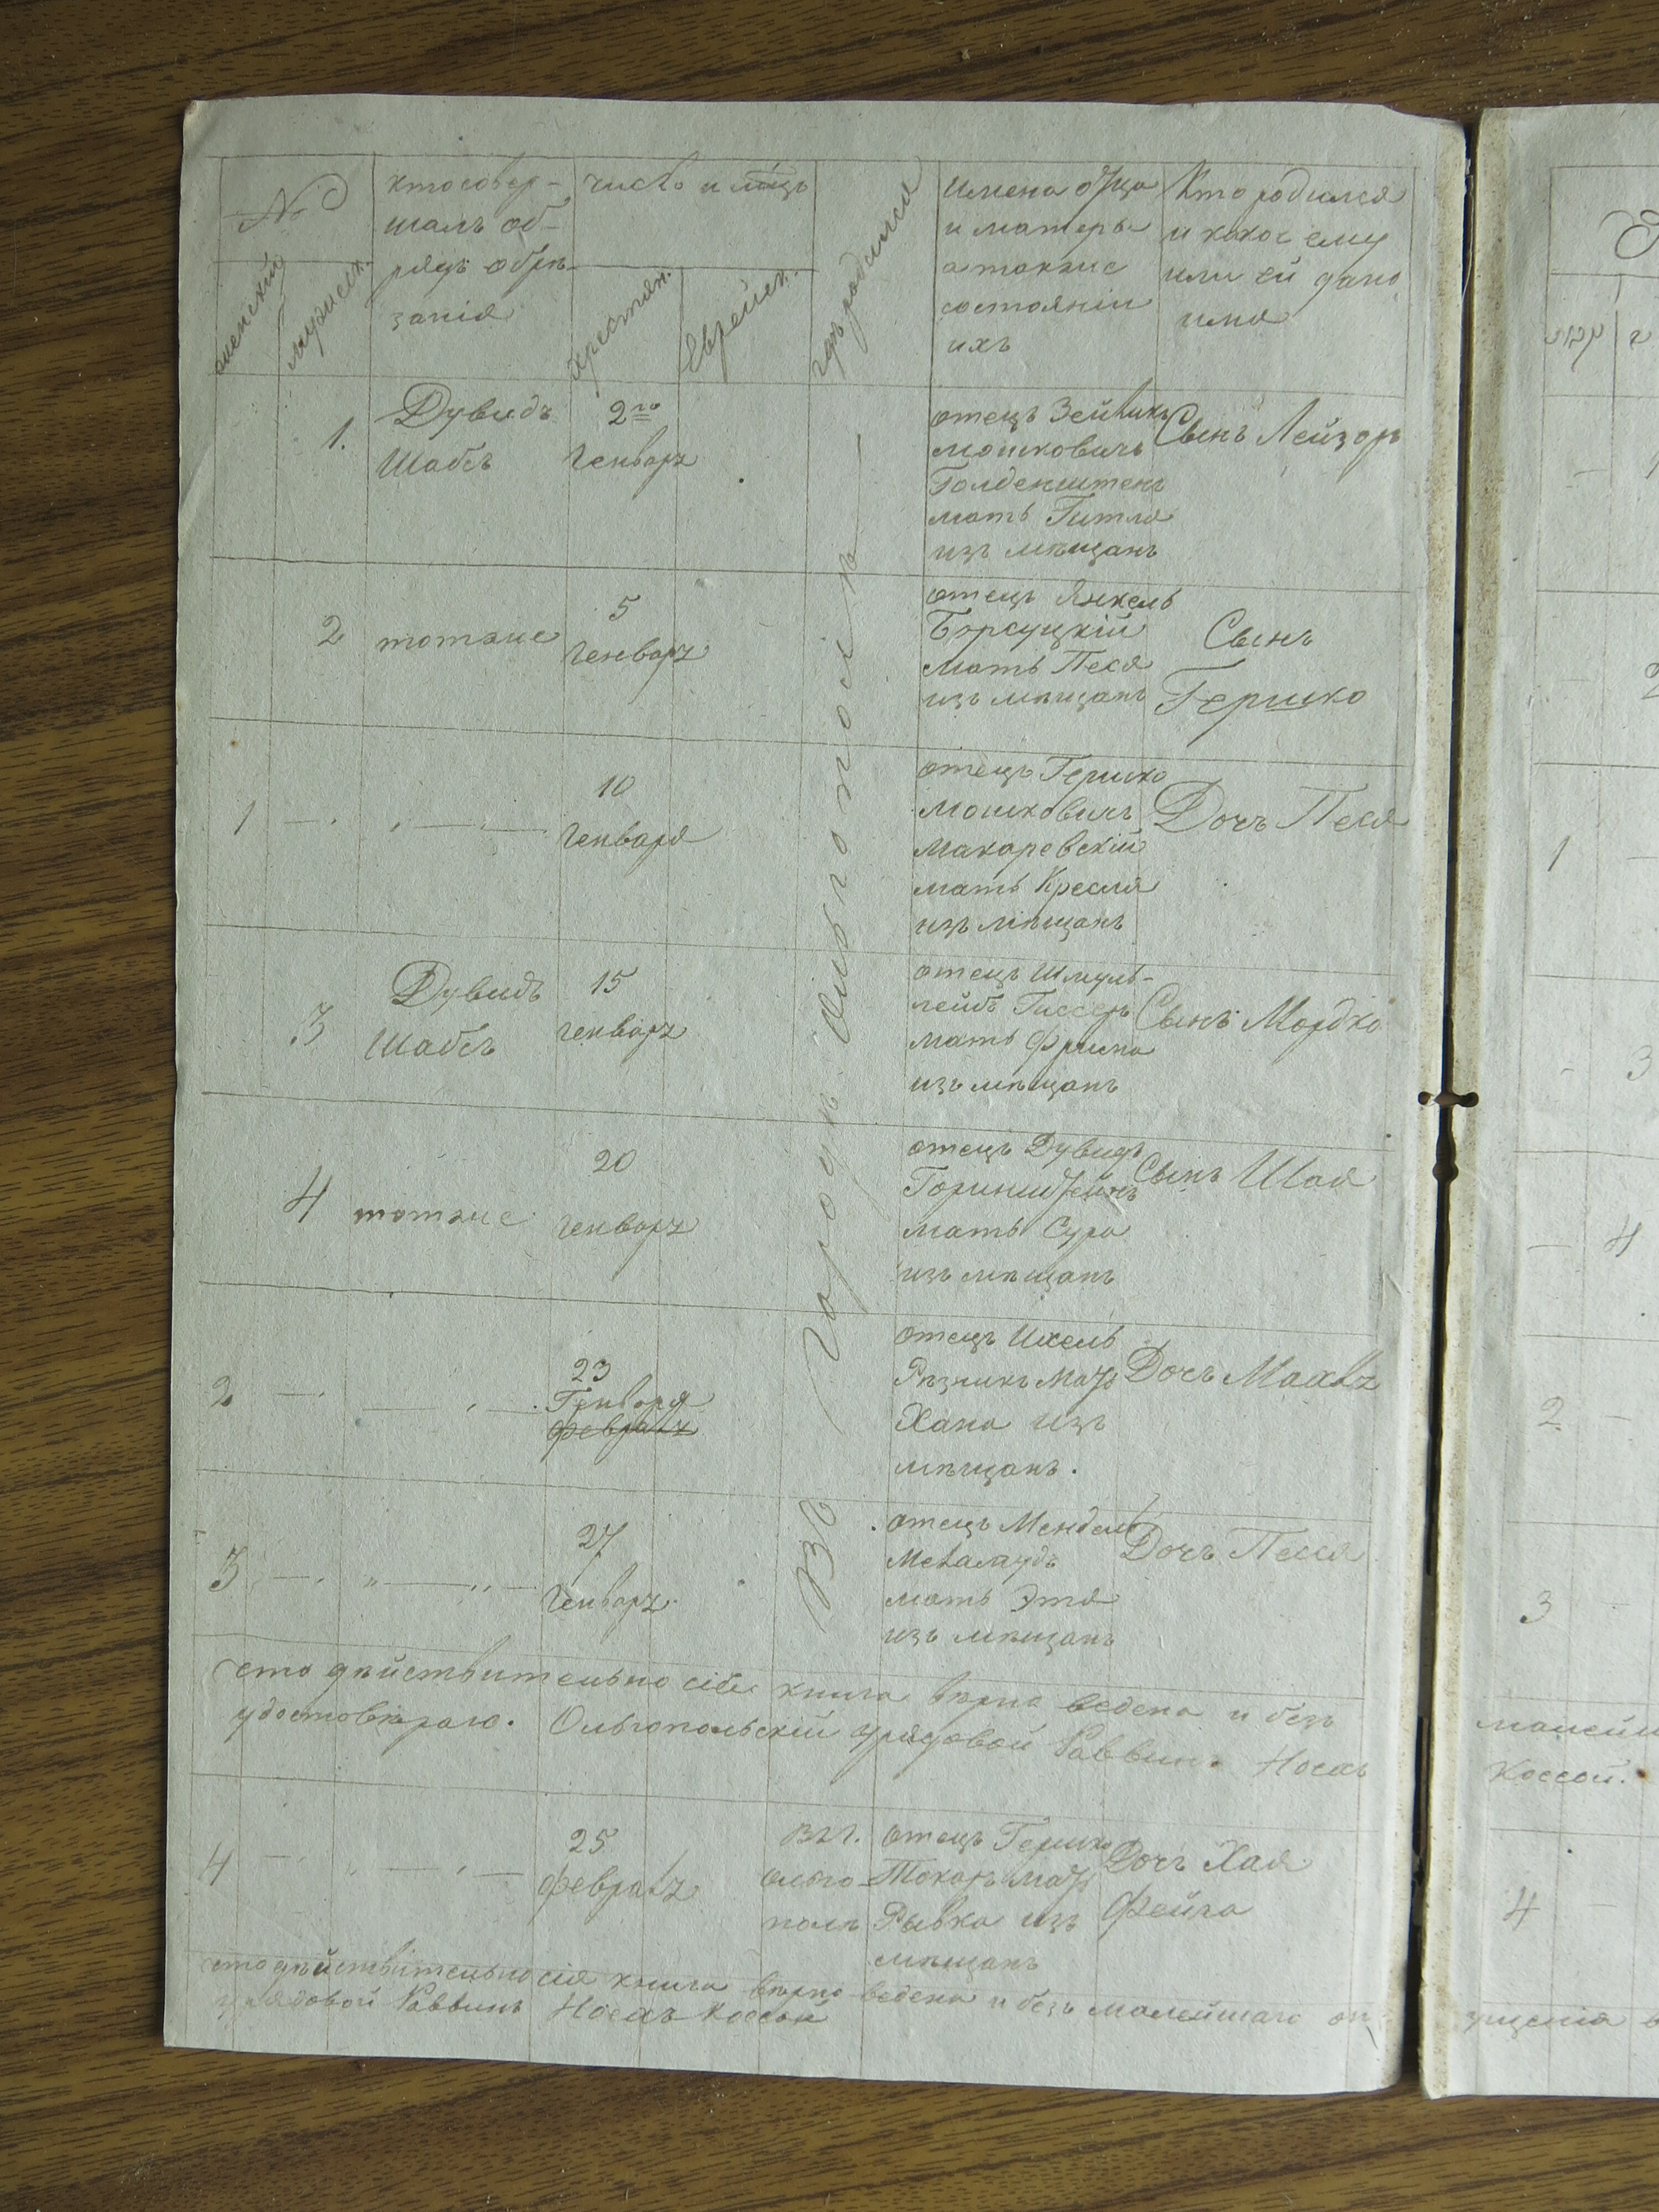 №
женскій
мужеск.
кто совер-
шалъ об-
рядъ обрѣ-
занія
число и мѣцъ
христіян.
Еврейск.
гдѣ родился
имена отца
и матеры
а также
состояніи
ихъ
Кто родился
и какое ему
или ей дано
имя
1.
Дувидъ
Шабсъ
2го
Генваря
отецъ Зейвикъ
Мошковичъ
Голденштенъ
мать Гитля
изъ мѣщанъ
Сынъ Лейзоръ
2
тотже
5
Генваря
отецъ Янкель
Борсуцкій
мать Песя
изъ мѣщанъ
Сынъ
Гершко
1
10
Генваря
отецъ Гершко
Мошковичъ
Макаревскій
мать Кресля
изъ мѣщанъ
Дочъ Песя
3
Дувидъ
Шабсъ
15
Генваря
отецъ Шмуль-
лейбъ Гиссеръ
мать Фрима
изъ мѣщанъ
Сынъ Мордко
4
тотже
20
Генваря
отецъ Дувидъ
Горинштейнъ
мать Сура
изъ мѣщанъ
Сынъ Шая
2
23
Генваря
Февраля
отецъ Ихель
Рѣзникъ мать
Хана изъ
мѣщанъ.
Дочъ Махля
3
27
Генваря
отецъ Мендель
Меламудъ
мать Этя
изъ мѣщанъ
Дочъ Песся
въ городѣ Ольгополѣ
сто дѣйствительно сія книга вѣрно ведена и безъ
удостовѣраю. Ольгопольскій урядовой Раввинъ Носахъ
4
25
Февраля
въ г.
Ольго-
полѣ
отецъ Гершко
Токаръ мать
Рывка изъ
мѣщанъ
Дочъ Хая
Фейга
сто дѣйствительно сія книга вѣрно ведена и безъ малейшаго оп-
урядовой Раввинъ Носахъ Коссой
1
2
3
4
1
2
3
Коссой.
4
ущенія в